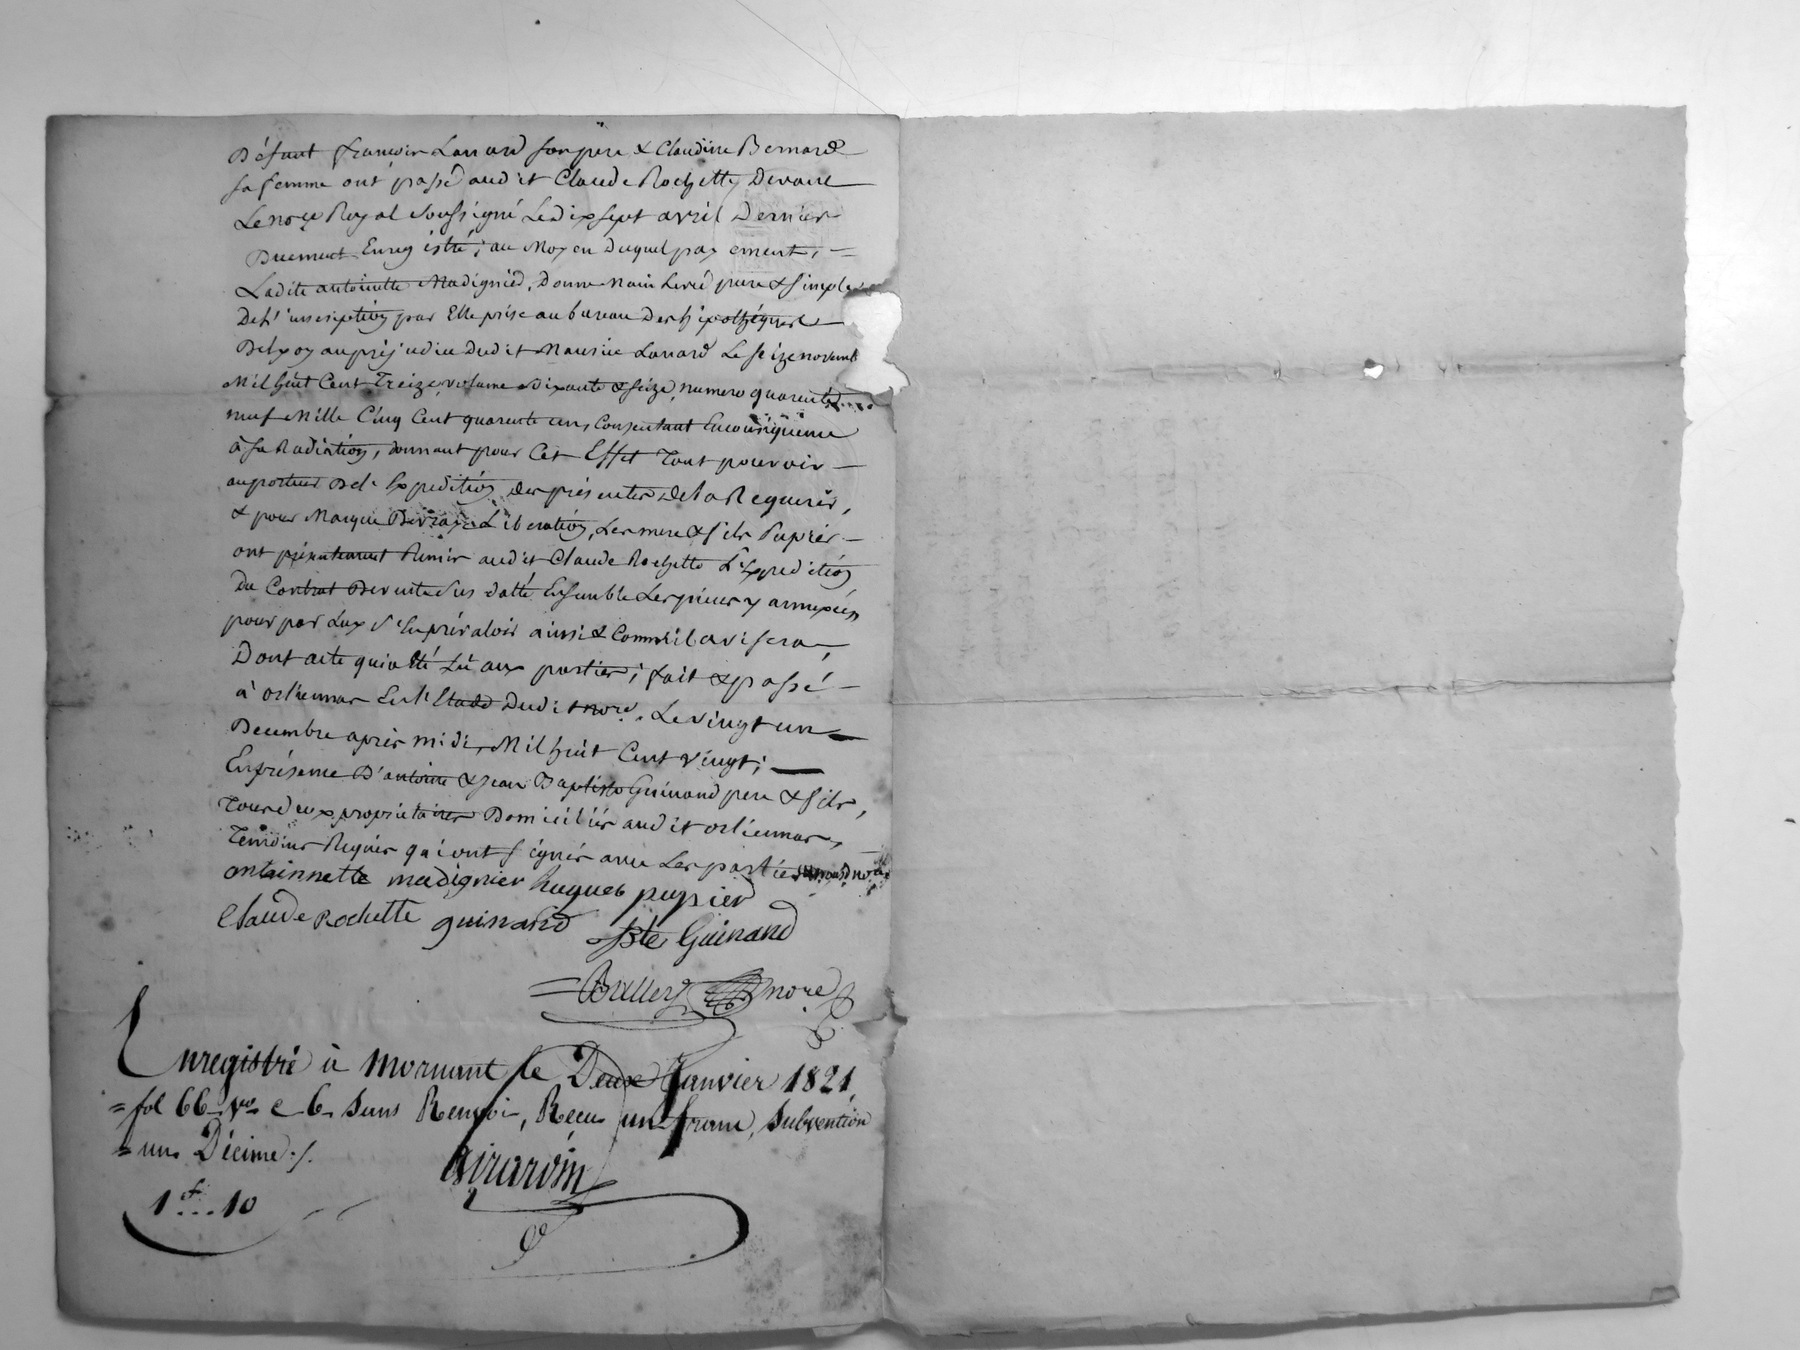 Défunt françois Lanard son pere & Claudine Bernard
sa femme ont passé audit Claude Rochette, Devant
Le nore Royal soussigné Le dix sept avril Dernier
Duement Enregistré; au Moyen Duquel payement,
Ladite antoinette Madignier, Donne Main Levée pure & simple
De L'inscription par Elle prise au bureau Des hipothéques
De Lyon au préjudice Dudit Maurice Lanard Le seize novembre
Mil huit Cent Treize, volume soixante & seize, numero quarente
neuf Mille Cinq Cent quarente un, Consentant En conséquence
à sa Radiation, donnant pour Cet Effet Tout pouvoir
au porteur De L'Expedition des présentes de la Requerir,
& pour Marque De vraye Liberation, Les mere & fils Pupier
ont présentement Remis audit Claude Rochette L'Expedition
Du Contrat De vente sus datté Ensemble Les pieces y annexées
pour par Lui s'En prévaloir ainsi & Comme il avisera,
Dont acte qui a Eté Lû aux parties; fait & passé
à orliennas En L'Etude Dudit nore. Le vingt un
Decembre après midi, Mil huit Cent vingt;
En présence D'antoine & jean Baptiste Guinand pere & fils,
Tous deux propriétaires Domiciliés audit orliennas,
Témoins Requis qui ont signés avec Les parties & nousd nore
antoinnette madignier hugues pupier
Claude Rochette guinand
jBte Guinand
Brulley nore
Enregistré à Mornant le Deux Janvier 1821,
fol 66 vo c 6 sans Renvoi, Reçu un franc, subvention
un Décime ./.
Girardin
1f...10